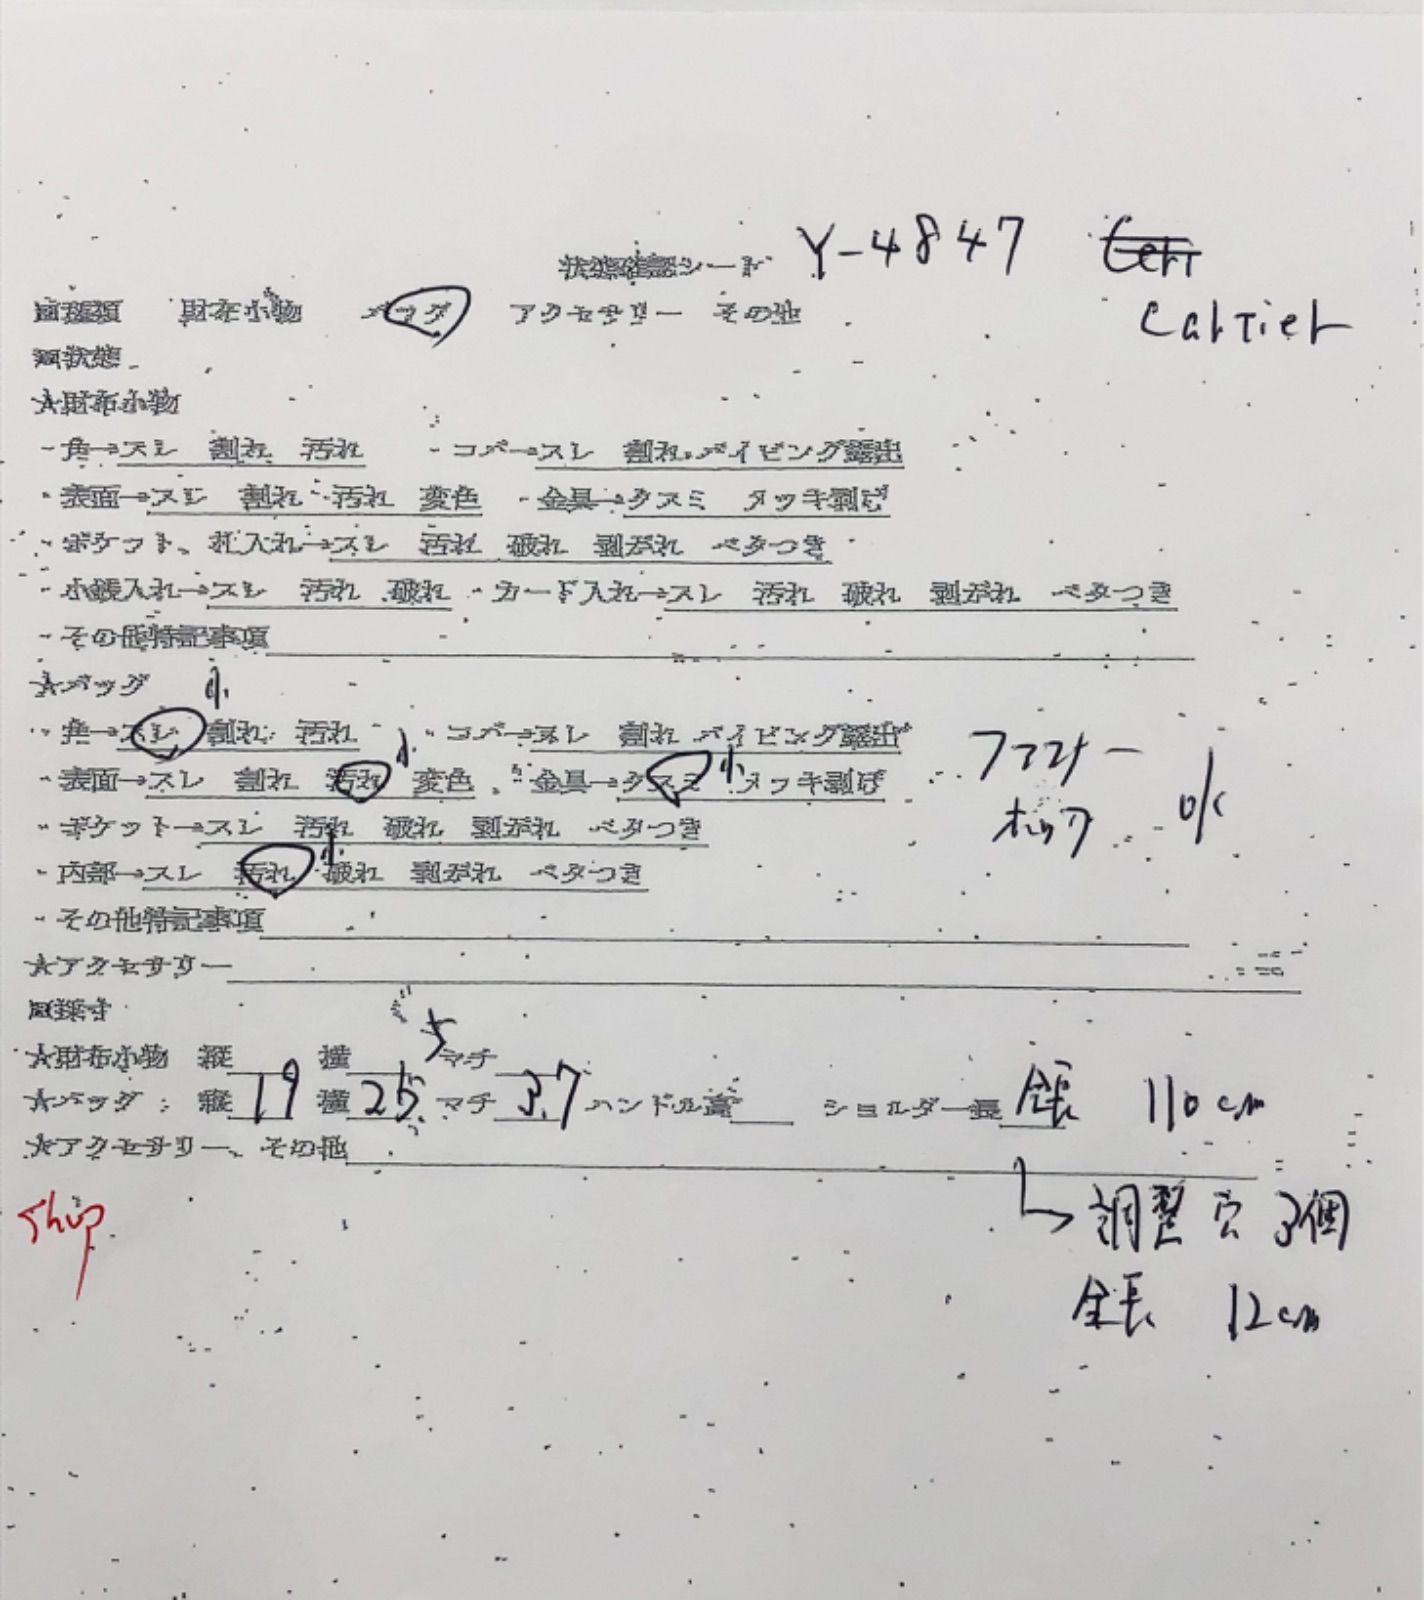 状態確認シート Y-4847
Cartier
■種類 財布小物 バッグ アクセサリー その他
■状態
★財布小物
・角→スレ 割れ 汚れ ・コバ→スレ 割れ パイピング露出
・表面→スレ 割れ 汚れ 変色 ・金具→クスミ メッキ剥げ
・ポケット、札入れ→スレ 汚れ 破れ 剥がれ ベタつき
・小銭入れ→スレ 汚れ 破れ ・カード入れ→スレ 汚れ 破れ 剥がれ ベタつき
・その他特記事項
★バッグ 小
・角→スレ 割れ 汚れ ・コバ→スレ 割れ パイピング露出
・表面→スレ 割れ 汚れ 小 変色 ・金具→クスミ 小 メッキ剥げ
ファスナー
ホック OK
・ポケット→スレ 汚れ 破れ 剥がれ ベタつき
・内部→スレ 汚れ 小 破れ 剥がれ ベタつき
・その他特記事項
★アクセサリー
■採寸
★財布小物 縦 横 マチ
★バッグ 縦 19 横 25.5 マチ 3.7 ハンドル高 ショルダー長 全長 110cm
★アクセサリー、その他
調整穴 3個
全長 12cm